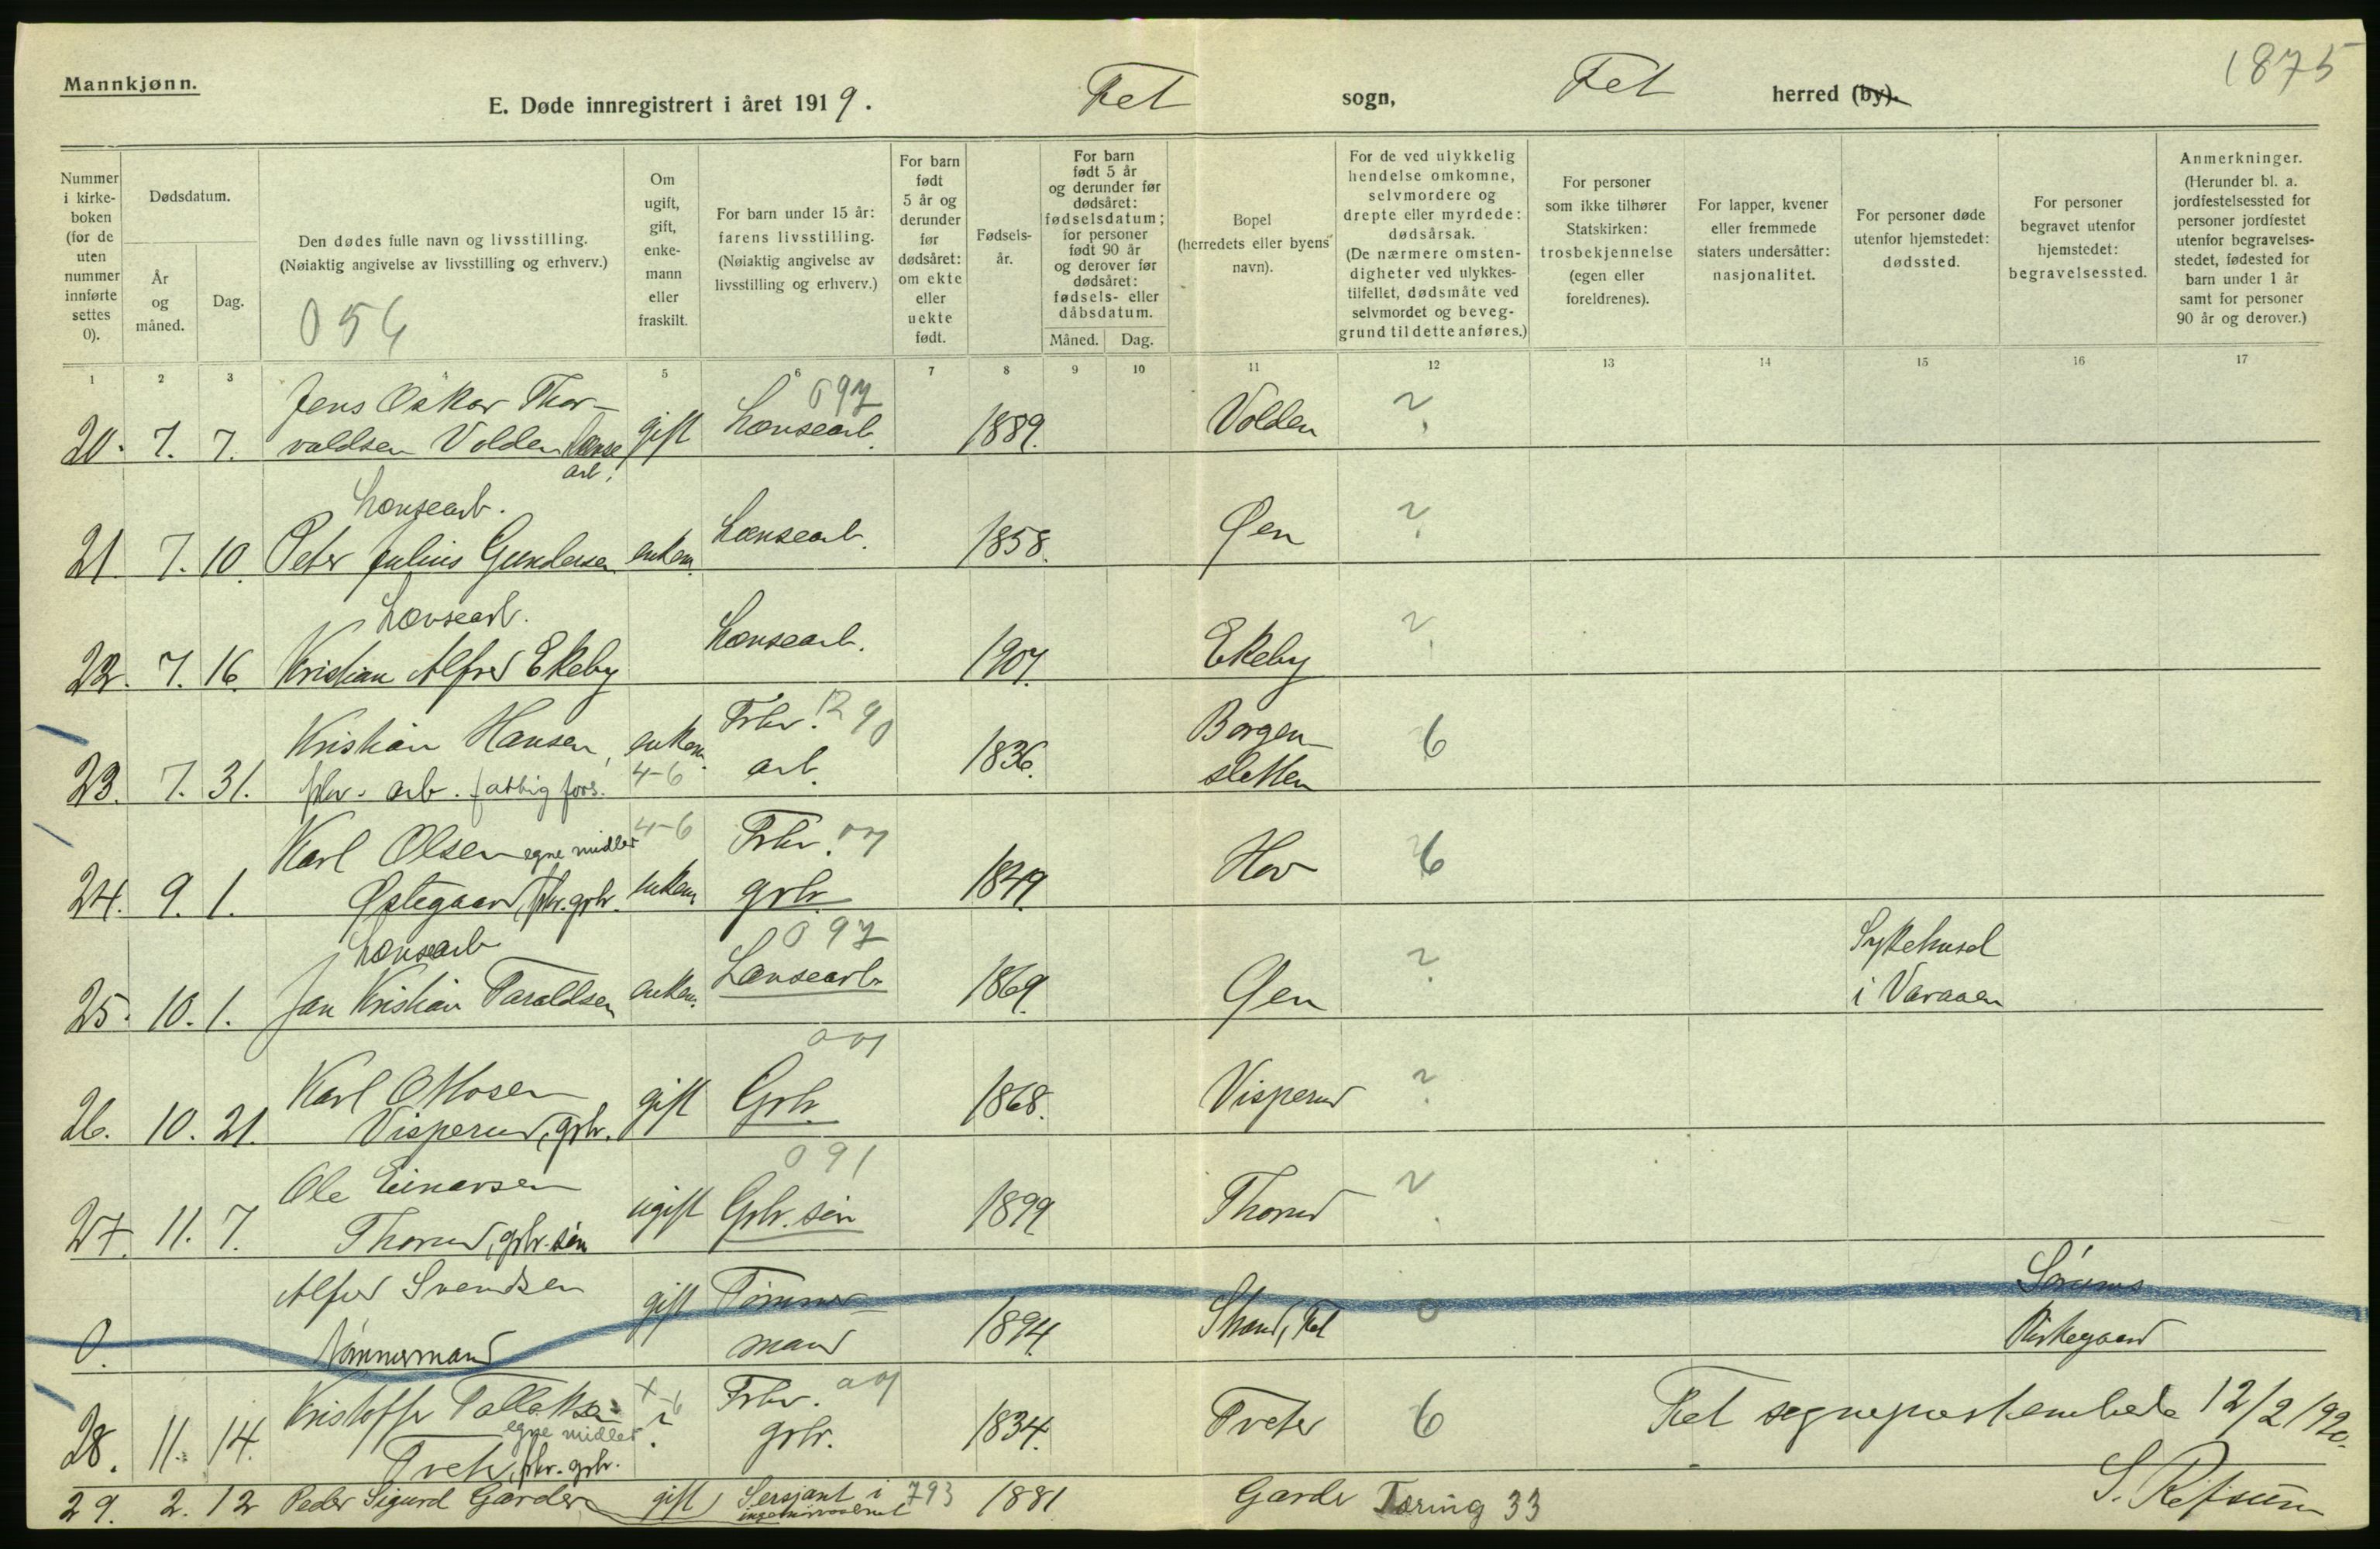 1875
Mannkjønn.
E. Døde innregistrert i året 1919. Fet sogn, Fet herred (by).
Nummer i kirkeboken (for de uten nummer innførte settes 0).
Dødsdatum.
År og måned.
Dag.
Den dødes fulle navn og livsstilling.
(Nøiaktig angivelse av livsstilling og erhverv.)
054
Om ugift, gift, enkemann eller fraskilt.
For barn under 15 år: farens livsstilling.
(Nøiaktig angivelse av livsstilling og erhverv.)
For barn født 5 år og derunder før dødsåret: om ekte eller uekte født.
Fødselsår.
For barn født 5 år og derunder før dødsåret: fødselsdatum; for personer født 90 år og derover før dødsåret: fødsels- eller dåbsdatum.
Måned. Dag.
Bopel
(herredets eller byens navn).
For de ved ulykkelig hendelse omkomne, selvmordere og drepte eller myrdede: dødsårsak.
(De nærmere omstendigheter ved ulykkestilfellet, dødsmåte ved selvmordet og beveggrund til dette anføres.)
For personer som ikke tilhører Statskirken: trosbekjennelse (egen eller foreldrenes).
For lapper, kvener eller fremmede staters undersåtter: nasjonalitet.
For personer døde utenfor hjemstedet: dødssted.
For personer begravet utenfor hjemstedet: begravelsessted.
Anmerkninger.
(Herunder bl. a. jordfestelsessted for personer jordfestet utenfor begravelsesstedet, fødested for barn under 1 år samt for personer 90 år og derover.)
1 2 3 4 5 6 7 8 9 10 11 12 13 14 15 16 17
Jens Oskar Thor- 097
20. 7. 7. valdsen Volden Lænse arb. gift Lænsearb. 1889. Volden ?
Lænsearb.
21. 7. 10. Peter Julius Gundersen enkem. Lænsearb. 1858. Øen ?
Lænsearb.
22. 7. 16. Kristian Alfred Ekeby Lænsearb. 1907. Ekeby ?
Kristian Hansen, enkem. Fhv. 290 Borgen-
23. 7. 31. fhv. arb. fattig fors. 4-6 arb. 1836. sletten 6
Karl Olsen egne midler 4-6 Fhv. 001
24. 9. 1. Østegaard, fhv. grbr. enkem. grbr. 1849. Hov 6
Lænsearb 097 Sykehuset
25. 10. 1. Jan Kristian Taraldsen enkem. Lænsearb. 1869. Øen ? i Varaaen
001
Karl Ottosen
26. 10. 21. Visperud, gbr. gift Gbr. 1868. Visperud ?
Ole Einarsen 091
27. 11. 7. Thorud, gbr. søn ugift Gbr. søn 1899 Thorud ?
Alfred Svendsen gift Tømmer- Sørums
0. tømmermand mand 1894. Strand, Fet 0 Kirkegaard
Kristoffer Tollefsen x-6 Fhv. 001
egne midler ?
28. 11. 14. Tveter, fhv. grbr. grbr. 1834. Tveter 6 Fet sogneprestembede 12/2 1920.
29. 2. 12 Peder Sigurd Garder gift Sersjant i 793 1881 Garder Tæring 33 S. Refsum
ingeniørvaabnet